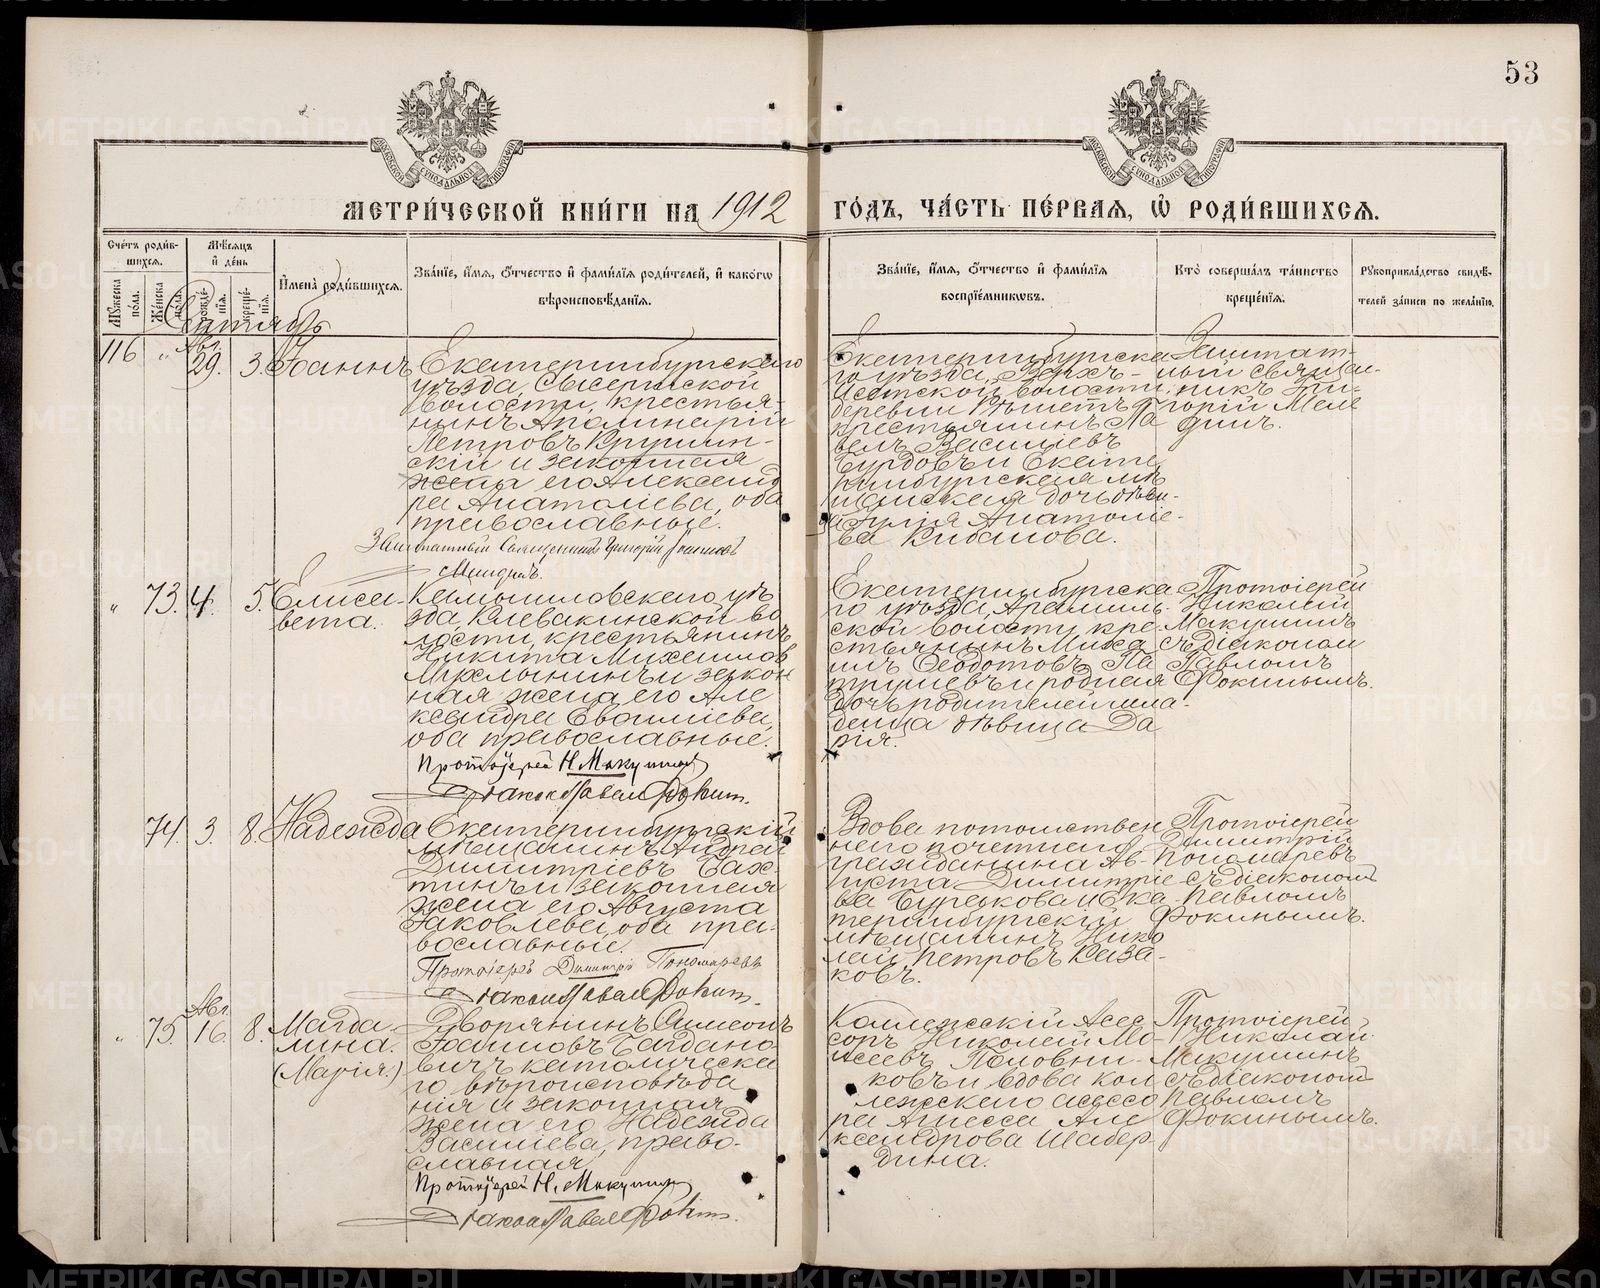 53
МОСКОВСКОЙ СѴНОДАЛЬНОЙ ТИПОГРАФІИ
МОСКОВСКОЙ СѴНОДАЛЬНОЙ ТИПОГРАФІИ
МЕТРИ́ЧЕСКОЙ КНИ́ГИ НА 1912
ГО́ДЪ, ЧА́СТЬ ПЕ́РВАЯ, Ѽ РОДИ́ВШИХСЯ.
Сче́тъ роди́в-
шихся.
Мꙋ́жеска по́ла.
Же́нска по́ла.
Мѣ́сяцъ
и҆ де́нь
рожде́-
нїя.
креще́-
нїя.
И҆мена̀ роди́вшихся.
Зва́нїе, и҆́мя, ѻ҆́тчество и҆ фами́лїя роди́телей, и҆ како́гѡ
вѣроисповѣ́данїя.
Зва́нїе, и҆́мя, ѻ҆́тчество и҆ фами́лїя
воспрїе́мникѡвъ.
Кто̀ соверша́лъ та́инство
креще́нїя.
Рꙋкоприкла́дство свидѣ́-
телей за́писи по жела́нїю.
Сентябрь
116 " Авг. 29. 3 Іоаннъ
Екатеринбургскаго
уѣзда, Сысертской
волости, крестья-
нинъ Аполинарій
Петровъ Крушин-
скій и законная
жена его Александ
ра Анатоліева, оба
православные.
Заштатный Священникъ Григорій
Екатеринбургска
го уѣзда, Верхъ-
Исетской волости,
деревни Рѣшетъ
крестьянинъ Па
велъ Василіевъ
Бурдовъ и Екате
ринбургская мѣ
щанская дочь дѣви-
ца Юлія Анатоліе-
ва Кибанова.
Заштат-
ный священ-
никъ Гри-
горій Меле
динъ.
" 73. 4. 5. Елиса-
вета.
Камышловскаго уѣ
зда, Клевакинской во
лости, крестьянинъ
Никита Михаиловъ
Мукомынинъ и закон
ная жена его Але
ксандра
оба православные.
Протоіерей Н. Макушинъ
Діаконъ Павелъ Фокинъ.
Екатеринбургска
го уѣзда, Арамиль-
ской волости, кре-
стьянинъ Миха
илъ Ѳеодотовъ Па
трушевъ и родная
дочь родителей мла-
денца дѣвица Да
рія.
Протоіерей
Николай
Макушинъ
съ діакономъ
Павломъ
Фокинымъ.
74. 3. 8. Надежда
Екатеринбургскій
мѣщанинъ Андрей
Димитріевъ Бах-
тинъ и законная
жена его Августа
Іаковлева, оба пра-
вославные.
Протоіерей Димитрій Пономаревъ
Діаконъ Павелъ Фокинъ.
Вдова потомствен
наго почетнаго
гражданина Ав-
густа Димитріе
ва Бурькова и Ека
теринбургскій
мѣщанинъ Нико
лай Петровъ Каза-
ковъ.
Протоіерей
Димитрій
Пономаревъ
съ діакономъ
Павломъ
Фокинымъ.
" 75. Авг. 16. 8. Магда
лина.
(Марія.)
Дворянинъ Симеонъ
Іоанновъ Багдано-
вичъ католическа
го вѣроисповѣда
нія и законная
жена его Надежда
Василіева, право-
славная.
Протоіерей Н. Макушинъ
Діаконъ Павелъ Фокинъ.
Коллежскій Асес
соръ Николай Мо-
исеевъ Половни-
ковъ и вдова кол
лежскаго асессо
ра Агнесса Але
ксандрова Шабер
дина.
Протоіерей
Николай
Макушинъ
съ діакономъ
Павломъ
Фокинымъ.
METRIKI.GASO-URAL.RU